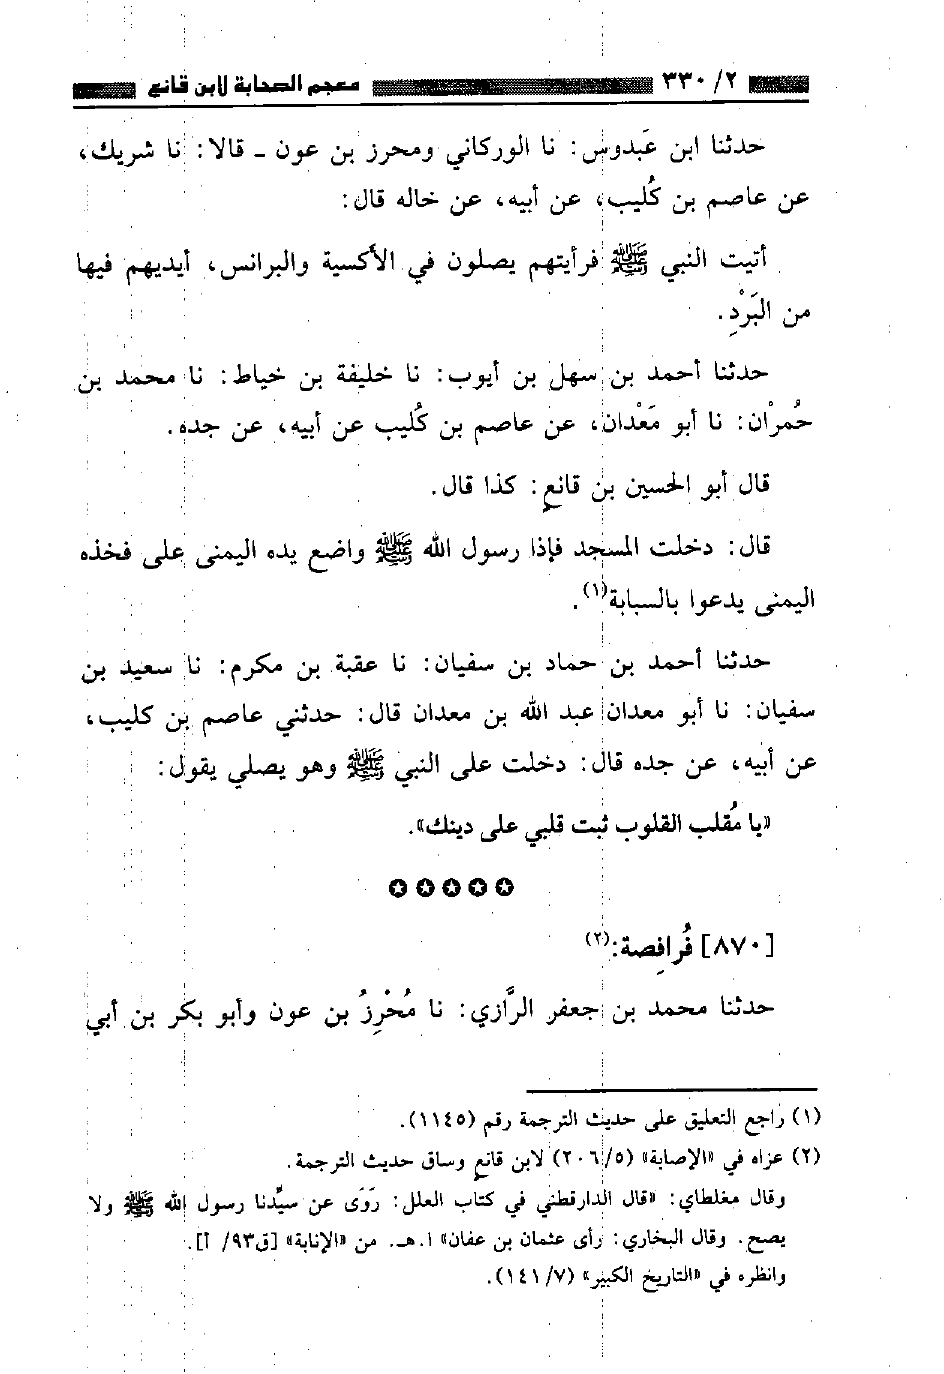 ٢/ ٣٣٠ معجم الصحابة لابن قانع
حدثنا ابن عَبدوس: نا الوركاني ومحرز بن عون - قالا: نا شريك،
عن عاصم بن كُليب، عن أبيه، عن خاله قال:
أتيت النبي ﷺ فرأيتهم يصلون في الأكسية والبرانس، أيديهم فيها
من البَرْدِ.
حدثنا أحمد بن سهل بن أيوب: نا خليفة بن خياط: نا محمد بن
حُمرْان: نا أبو مَعْدان، عن عاصم بن كُليب عن أبيه، عن جده.
قال أبو الحسين بن قانع: كذا قال.
قال: دخلت المسجد فإذا رسول الله ﷺ واضع يده اليمنى على فخذه
اليمنى يدعوا بالسبابة(١).
حدثنا أحمد بن حماد بن سفيان: نا عقبة بن مكرم: نا سعيد بن
سفيان: نا أبو معدان عبد الله بن معدان قال: حدثني عاصم بن كليب،
عن أبيه، عن جده قال: دخلت على النبي ﷺ وهو يصلي يقول:
«يا مُقلب القلوب ثبت قلبي على دينك».
[٨٧٠] فُرافِصة:(٢)
حدثنا محمد بن جعفر الرَّازي: نا مُحْرِزُ بن عون وأبو بكر بن أبي
(١) راجع التعليق على حديث الترجمة رقم (١١٤٥).
(٢) عزاه في «الإصابة» (٢٠٦/٥) لابن قانع وساق حديث الترجمة.
وقال مغلطاي: «قال الدارقطني في كتاب العلل: رَوَى عن سيِّدنا رسول الله ﷺ ولا
يصح. وقال البخاري: رأى عثمان بن عفان» ا.هـ. من «الإنابة» [ق٩٣/ أ].
وانظره في «التاريخ الكبير» (١٤١/٧).